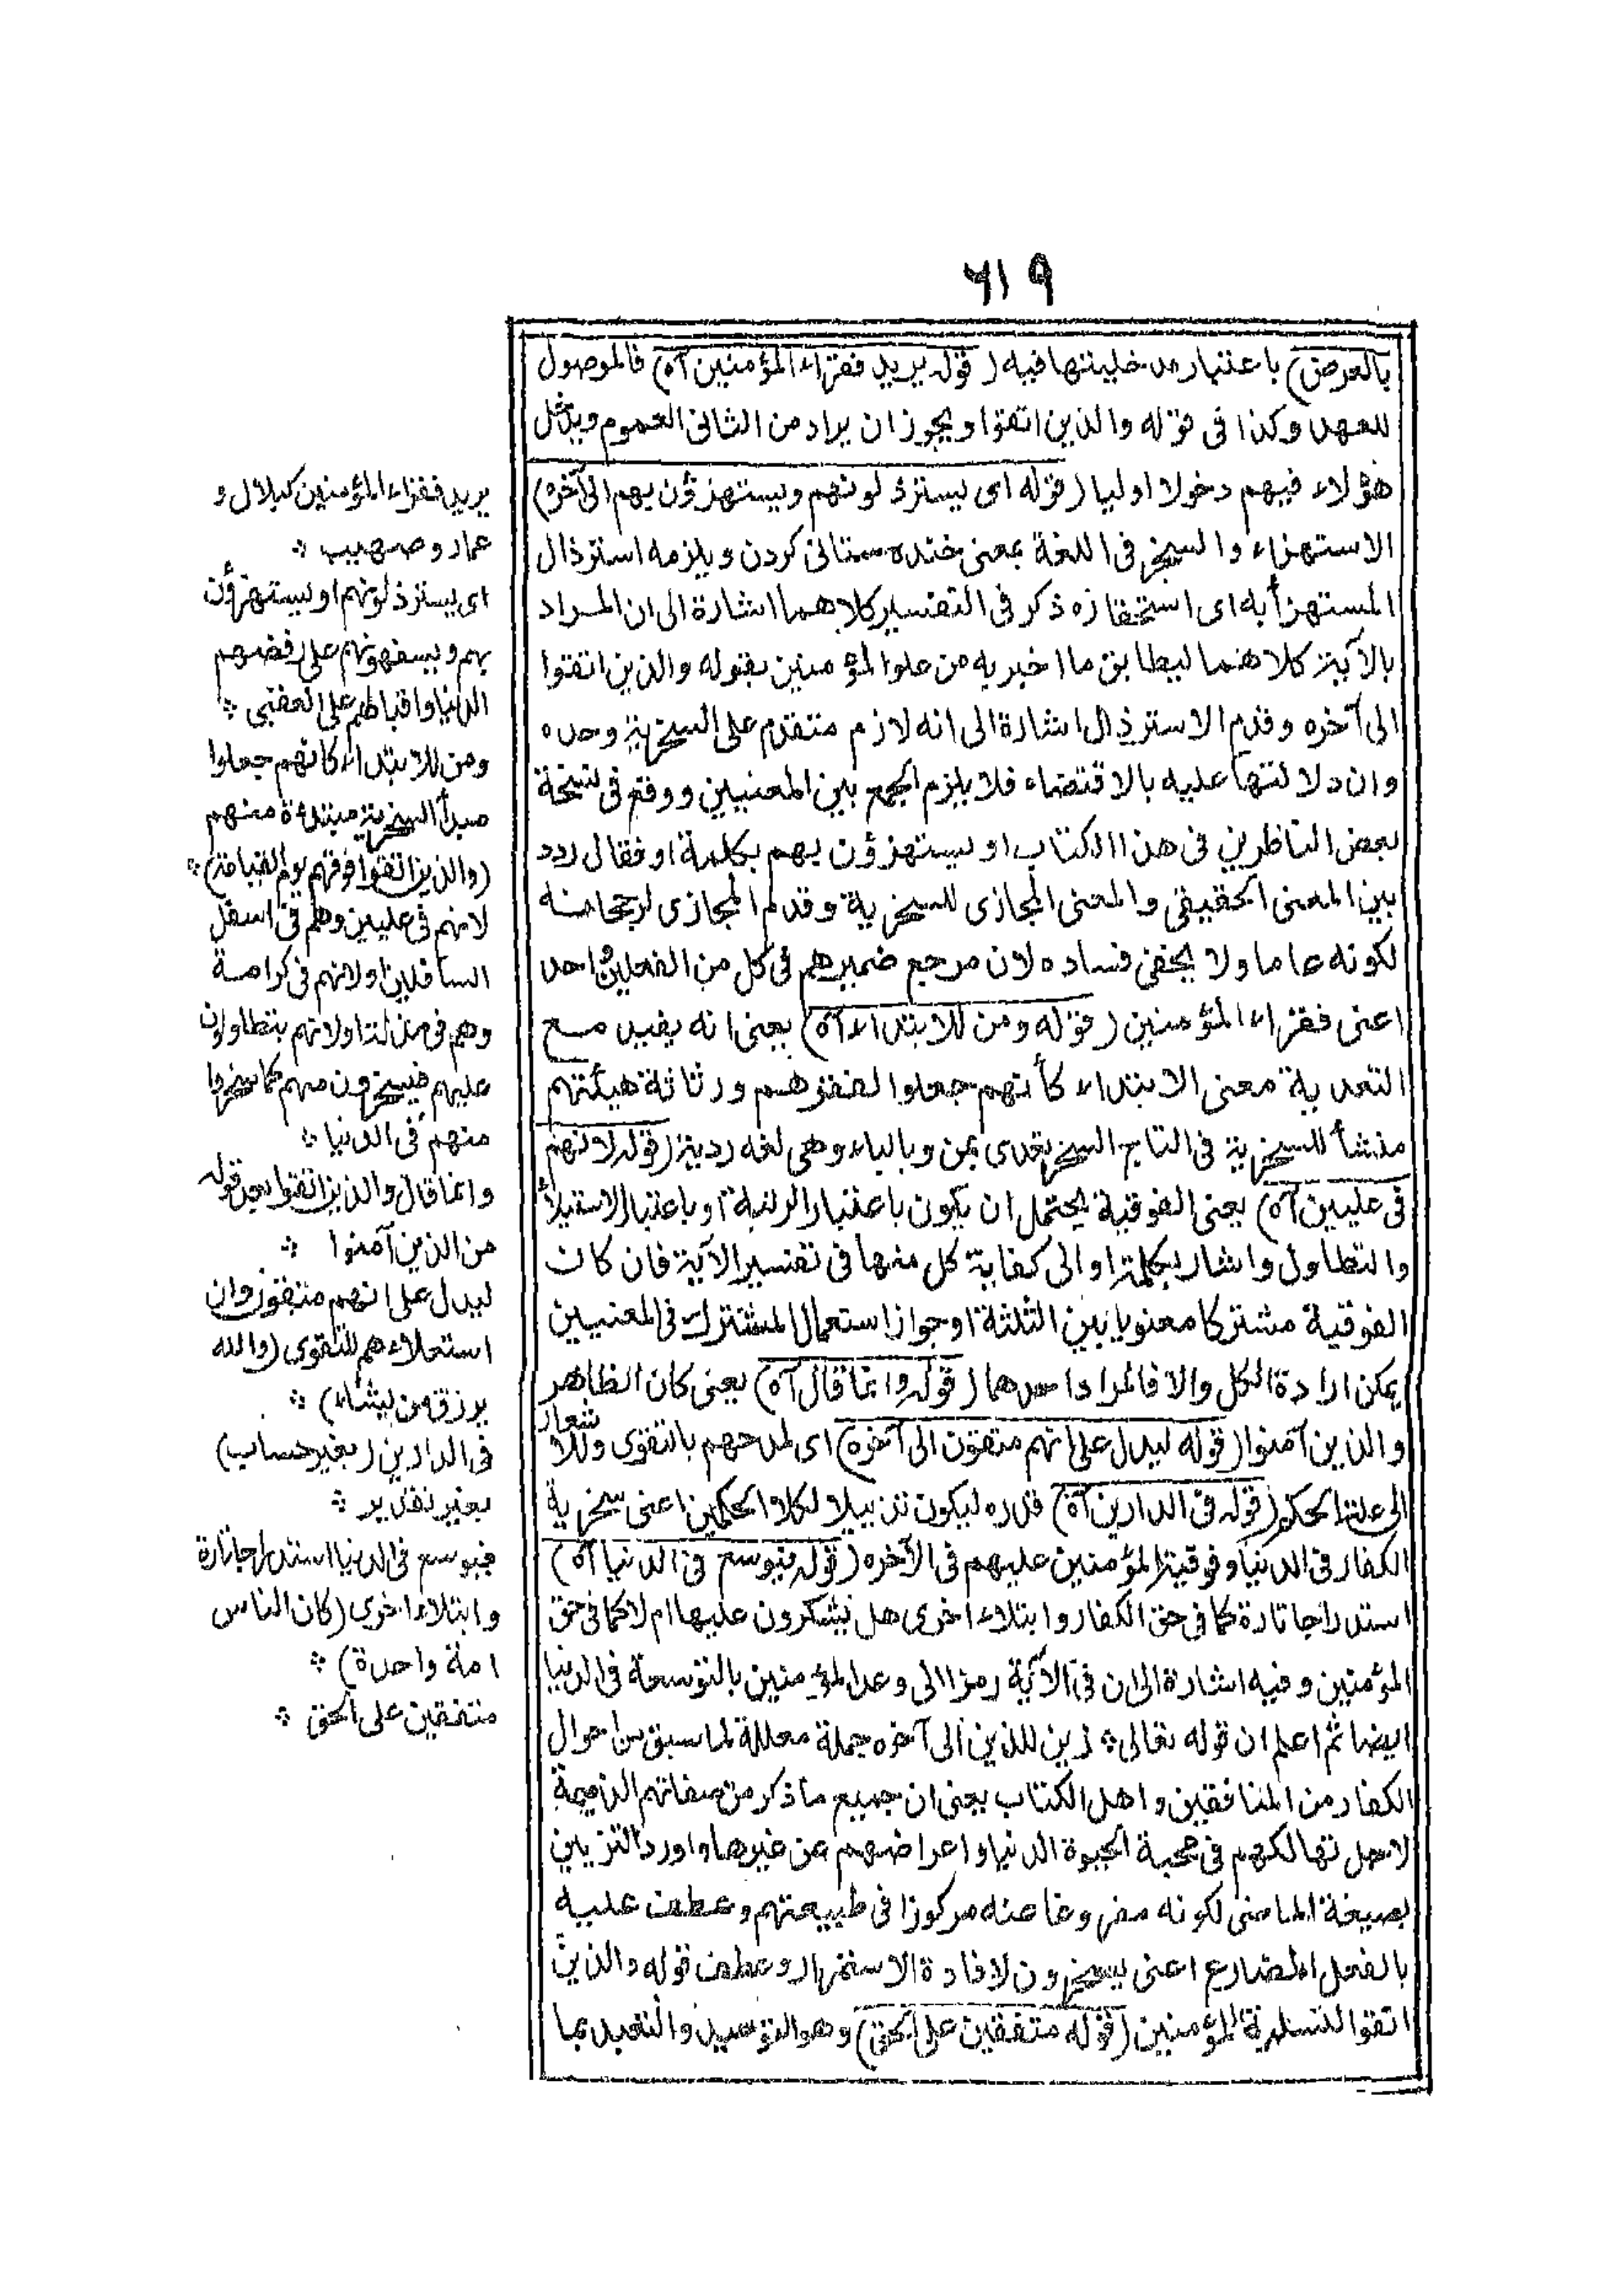 ٦١٩
بالعرض) باعتبار مدخليتها فيه (قوله يريد فقراء المؤمنين آه) فالموصول
للعهد وكذا فى قوله والذين اتقوا ويجوز ان يراد من الثانى العموم ويدخل
هؤلاء فيهم دخولا اوليا (قوله اى يسترذلونهم ويستهزؤن بهم الى آخره)
الاستهزاء والسخر فى اللغة بمعنى خنده ستانى كردن ويلزمه استرذال
المستهزأ به اى استحقاره ذكر فى التفسير كلاهما اشارة الى ان المراد
بالآية كلاهما ليطابق ما اخبر به من علو المؤمنين بقوله والذين اتقوا
الى آخره وقدم الاسترذال اشارة الى انه لازم متقدم على السخرية وحده
وان دلالتها عليه بالاقتضاء فلا يلزم الجمع بين المعنيين ووقع فى نسخة
بعض الناظرين فى هذا الكتاب او يستهزؤن بهم بكلمة او فقال ردد
بين المعنى الحقيقى والمعنى المجازى للسخرية وقدم المجازى لرجحانه
لكونه عاما ولا يخفى فساده لان مرجع ضميرهم فى كل من الفعلين واحد
اعنى فقراء المؤمنين (قوله ومن للابتداء آه) يعنى انه يفيد مع
التعدية معنى الابتداء كأنهم جعلوا لفقرهم ورثاثة هيئتهم
منشأ للسخرية فى التاج السخر يتعدى بمن وبالباء وهى لغه ردية (قوله لانهم
فى عليين آه) يعنى الفوقية يحتمل ان يكون باعتبار الرتبة او باعتبار الاستيلاء
والتطاول واشار بكلمة او الى كفاية كل منها فى تفسير الآية فان كانت
الفوقية مشتركا معنويا بين الثلثة او جواز استعمال المشترك فى المعنيين
يمكن ارادة الكل والا فالمراد احدهما (قوله وانما قال آه) يعنى كان الظاهر
والذين آمنوا (قوله ليدل على انهم متقون الى آخره) اى لمدحهم بالتقوى وللاشعار
الى علة الحكم (قوله فى الدارين آه) قدره ليكون تذييلا لكلا الحكمين اعنى سخرية
الكفار فى الدنيا وفوقية المؤمنين عليهم فى الآخره (قوله فيوسع فى الدنيا آه)
استدراجا تارة كما فى حق الكفار وابتلاء اخرى هل يشكرون عليها ام لا كما فى حق
المؤمنين وفيه اشارة الى ان فى الآية رمزا الى وعد المؤمنين بالتوسعة فى الدنيا
ايضا ثم اعلم ان قوله تعالى ؞ زين للذين الى آخره جملة معللة لما سبق من احوال
الكفار من المنافقين واهل الكتاب يعنى ان جميع ما ذكر من صفاتهم الذميمة
لاجل تهالكهم فى محبة الحيوة الدنيا واعراضهم عن غيرها واورد التزيين
بصيغة الماضى لكونه مفروغا عنه مركوزا فى طبيعتهم وعطف عليه
بالفعل المضارع اعنى يسخرون لافادة الاستمرار وعطف قوله والذين
اتقوا لتسلية المؤمنين (قوله متفقين على الحق) وهو التوحيد والتعبد بما
يريد فقراء المؤمنين كبلال و
عمار وصهيب ؞
اى يسترذلونهم او يستهزؤن
بهم ويسفهونهم على رفضهم
الدنيا واقبالهم على العقبى ؞
ومن للابتداء كانهم جعلوا
مبدأ السخرية مبتدءة منهم
(والذين اتقوا فوقهم يوم القيامة) ؞
لانهم فى عليين وهم فى اسفل
السافلين او لانهم فى كرامة
وهم فى مذلة او لانهم يتطاولون
عليهم فيسخرون منهم كما سخروا
منهم فى الدنيا ؞
وانما قال والذين اتقوا بعد قوله
من الذين آمنوا ؞
ليدل على انهم متقون وان
استعلاءهم للتقوى (والله
يرزق من يشاء) ؞
فى الدارين (بغير حساب)
بغير تقدير ؞
فيوسع فى الدنيا استدراجا تارة
وابتلاء اخرى (كان الناس
امة واحدة) ؞
متفقين على الحق ؞